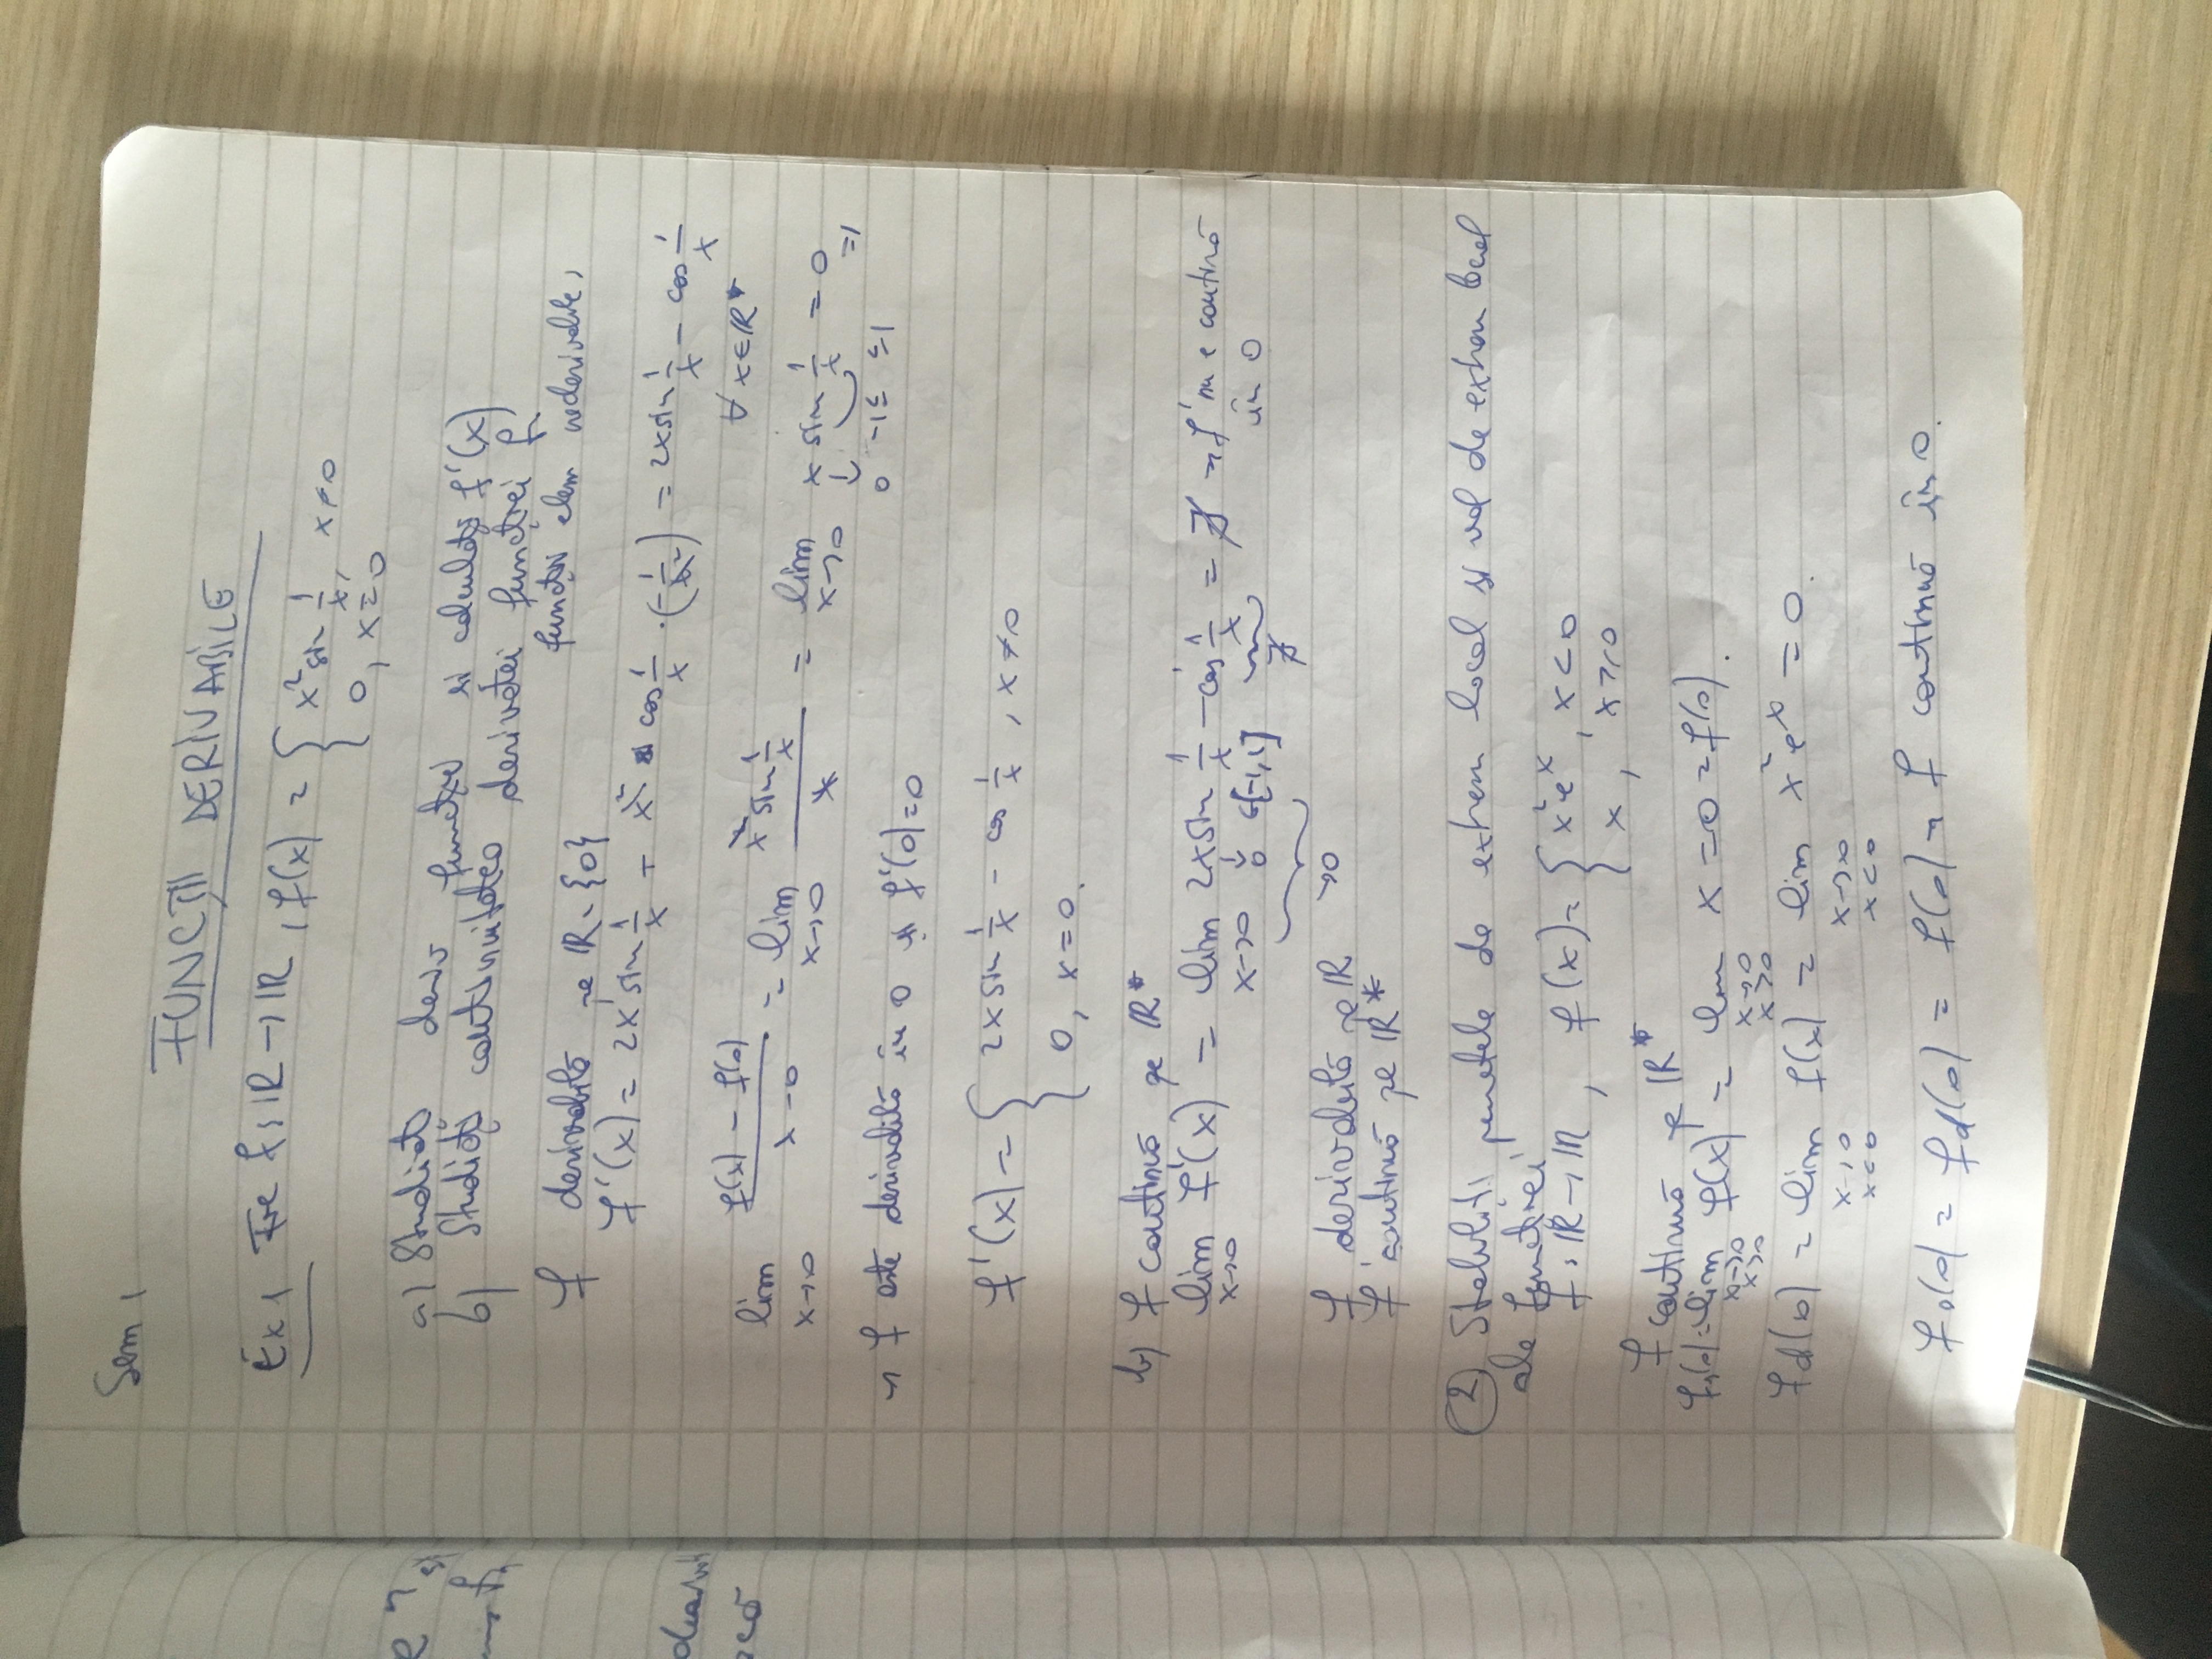 Sem 1
FUNCȚII DERIVABILE
Ex 1 Fie f: ℝ → ℝ, f(x) = { x² sin 1/x, x ≠ 0
0, x = 0
a) Studiați deriv funcției și calculați f'(x)
b) Studiați continuitatea derivatei funcției f
f derivabilă pe ℝ \ {0} funcții elem nederivabile,
f'(x) = 2x sin 1/x + x² cos 1/x · (-1/x²) = 2x sin 1/x - cos 1/x
∀ x ∈ ℝ*
lim x→0 (f(x) - f(0))/(x - 0) = lim x→0 (x² sin 1/x)/x = lim x→0 x sin 1/x = 0
↓ 0 -1≤ ≤1 =1
⇒ f este derivabilă în 0 și f'(0) = 0
f'(x) = { 2x sin 1/x - cos 1/x, x ≠ 0
0, x = 0.
b) f continuă pe ℝ*
lim x→0 f'(x) = lim x→0 2x sin 1/x - cos 1/x = ∄ ⇒ f' nu e continuă
↓ 0 ∈[-1,1] ∄ în 0
→0
f derivabilă pe ℝ
f' continuă pe ℝ*
② Stabiliți punctele de extrem local și val de extrem local
ale funcției
f: ℝ → ℝ, f(x) = { x²eˣ, x < 0
x, x ≥ 0
f continuă pe ℝ*
fs(0) = lim x→0 x>0 f(x) = lim x→0 x>0 x = 0 = f(0).
fd(0) = lim x→0 x<0 f(x) = lim x→0 x<0 x²eˣ = 0.
fs(0) = fd(0) = f(0) ⇒ f continuă în 0.